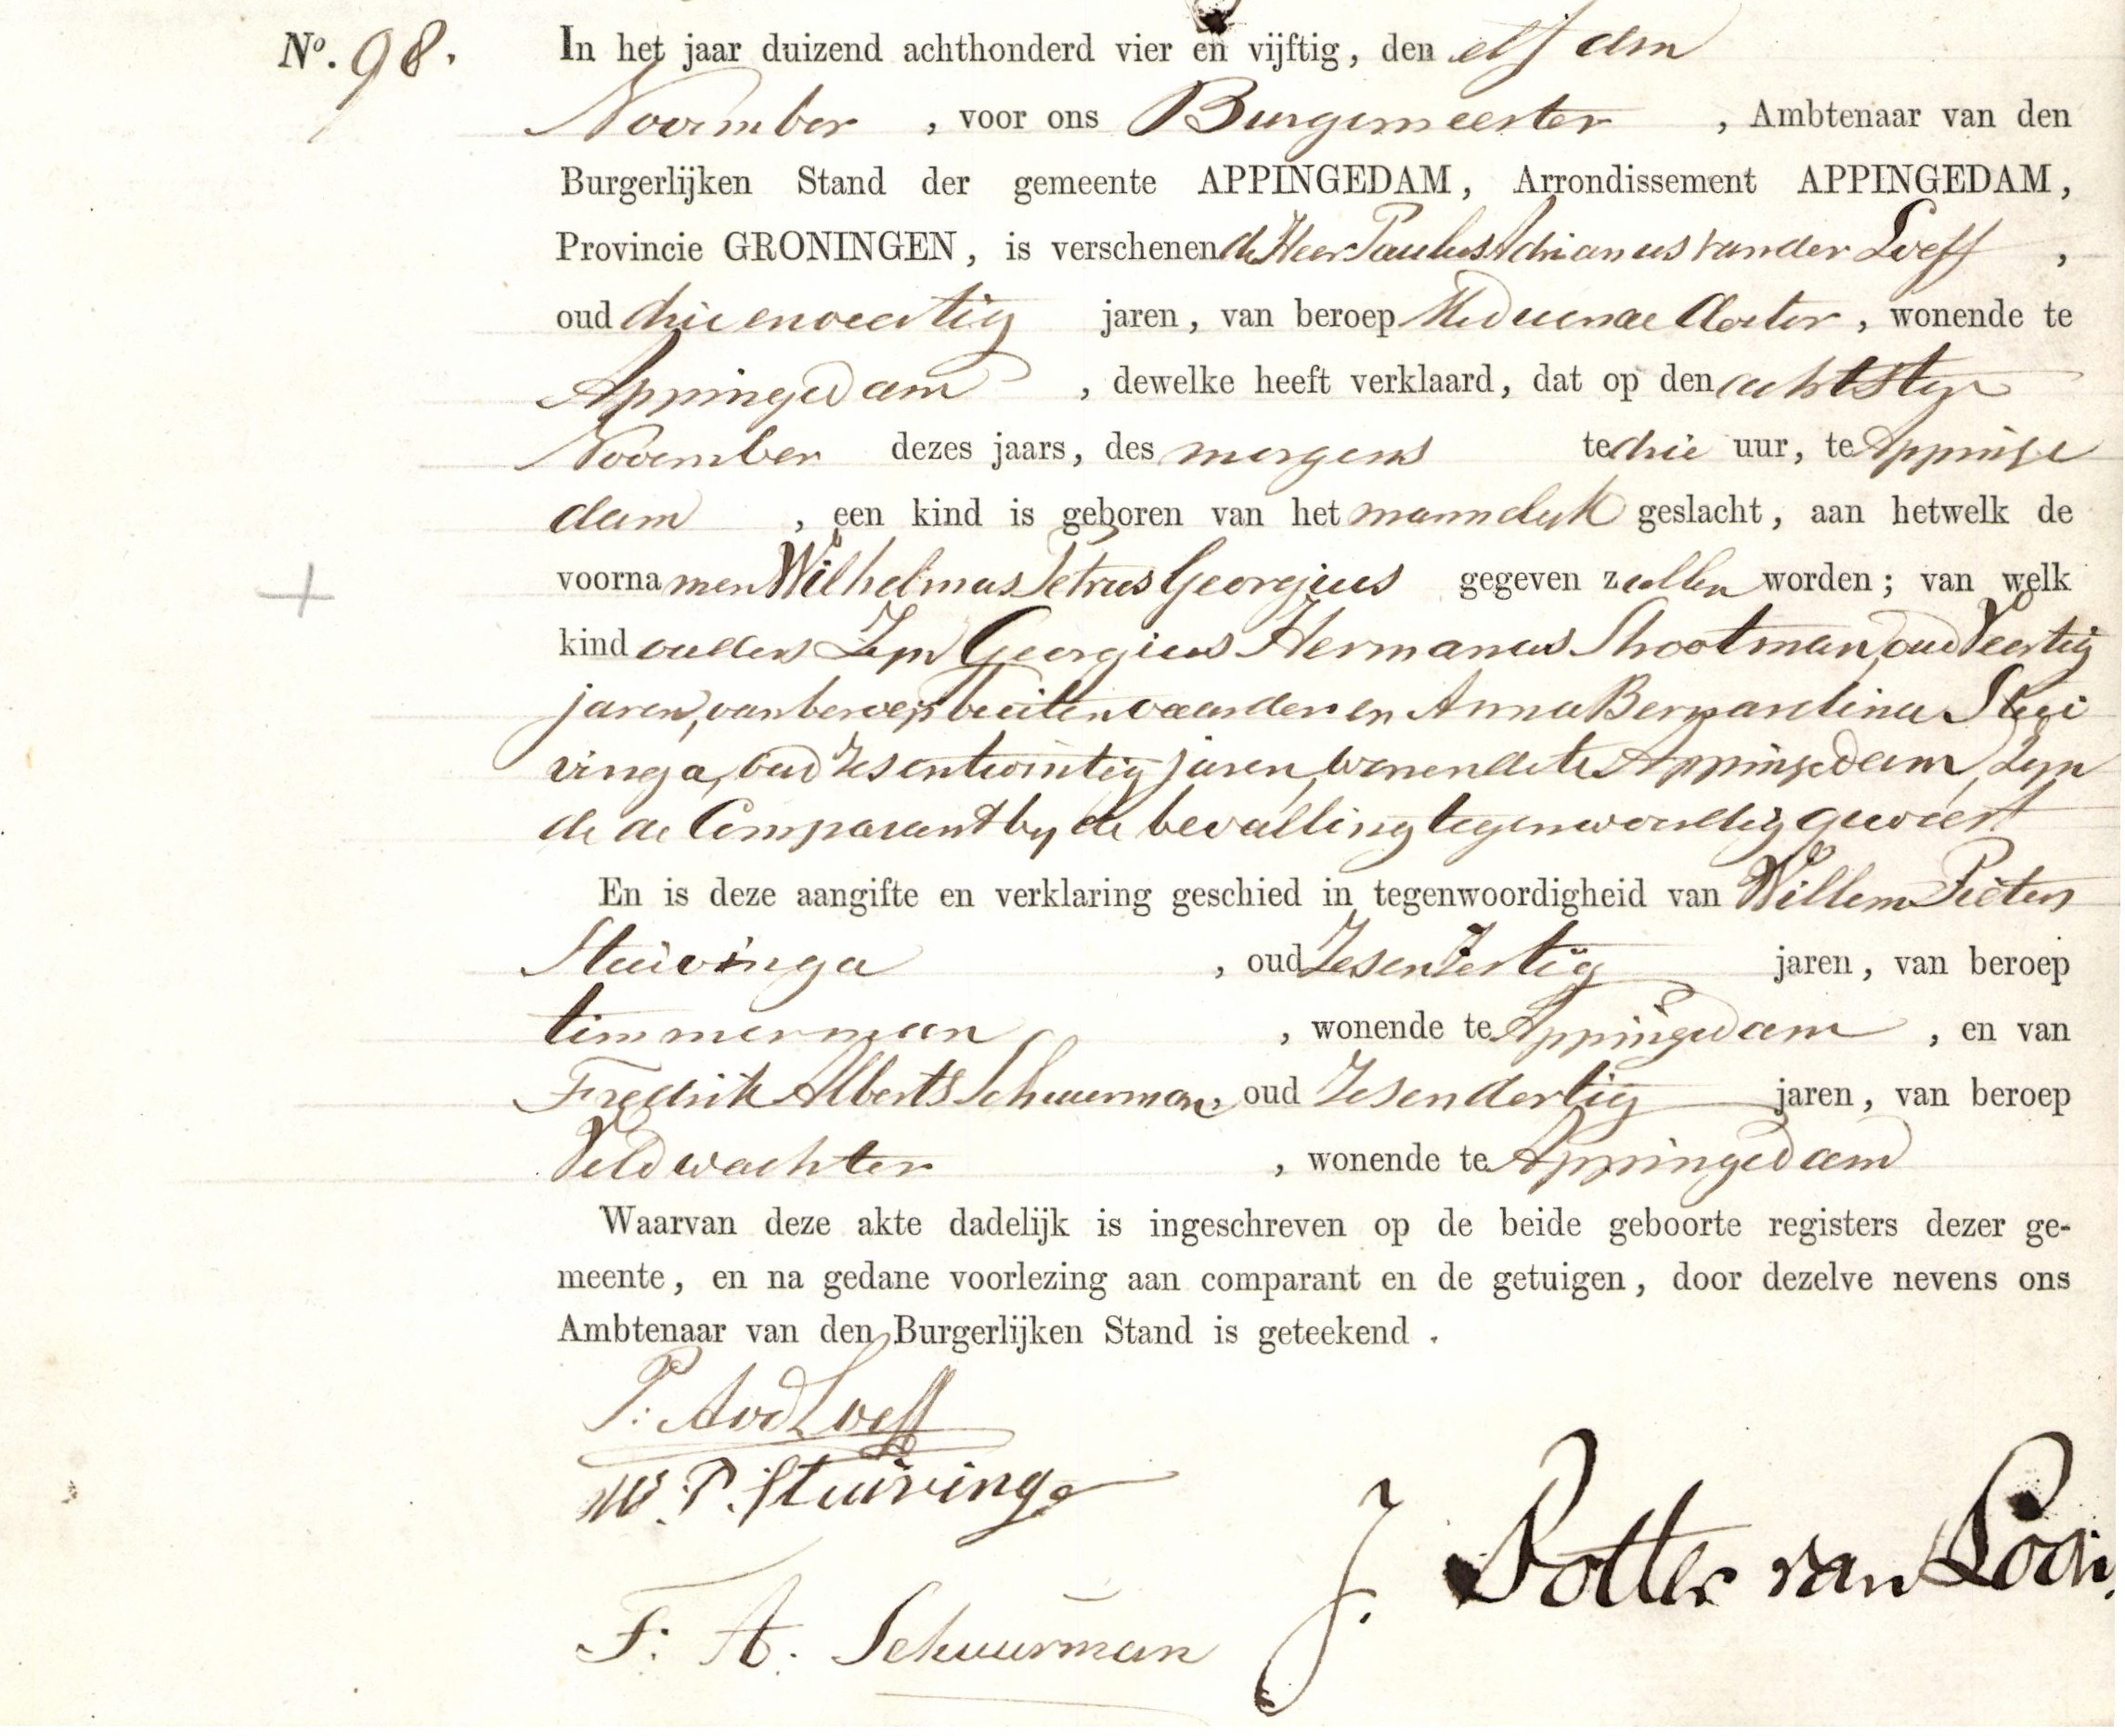 No. 98. In het jaar duizend achthonderd vier en vijftig, den elfden
November, voor ons Burgemeester, Ambtenaar van den
Burgerlijken Stand der gemeente APPINGEDAM, Arrondissement APPINGEDAM,
Provincie GRONINGEN, is verschenen de Heer Paulus Adrianus van der Loeff,
oud drie en veertig jaren, van beroep Medicinae Doctor, wonende te
Appingedam, dewelke heeft verklaard, dat op den achtsten
November dezes jaars, des morgens te drie uur, te Appinge
dam, een kind is geboren van het mannelyk geslacht, aan hetwelk de
voornamen Wilhelmus Petrus Georgius gegeven zullen worden; van welk
kind ouders Zyn Georgius Hermanus Shootman, oud Veertig
jaren, van beroep buitenvaarder en Anna Bernardina Stui
vinga, oud Zesentwintig jaren, wonende te Appingedam, Zyn
de de Comparant by de bevalling tegenwoordig geweest
En is deze aangifte en verklaring geschied in tegenwoordigheid van Willem Pieters
Stuivinga, oud Zesenzestig jaren, van beroep
timmerman, wonende te Appingedam, en van
Fredrik Alberts Schuurman, oud Zesendertig jaren, van beroep
Veldwachter, wonende te Appingedam
Waarvan deze akte dadelijk is ingeschreven op de beide geboorte registers dezer ge-
meente, en na gedane voorlezing aan comparant en de getuigen, door dezelve nevens ons
Ambtenaar van den Burgerlijken Stand is geteekend.
P. A v d Loeff
W. P. Stuivinga
J. Potter van Loon,
F. A. Schuurman